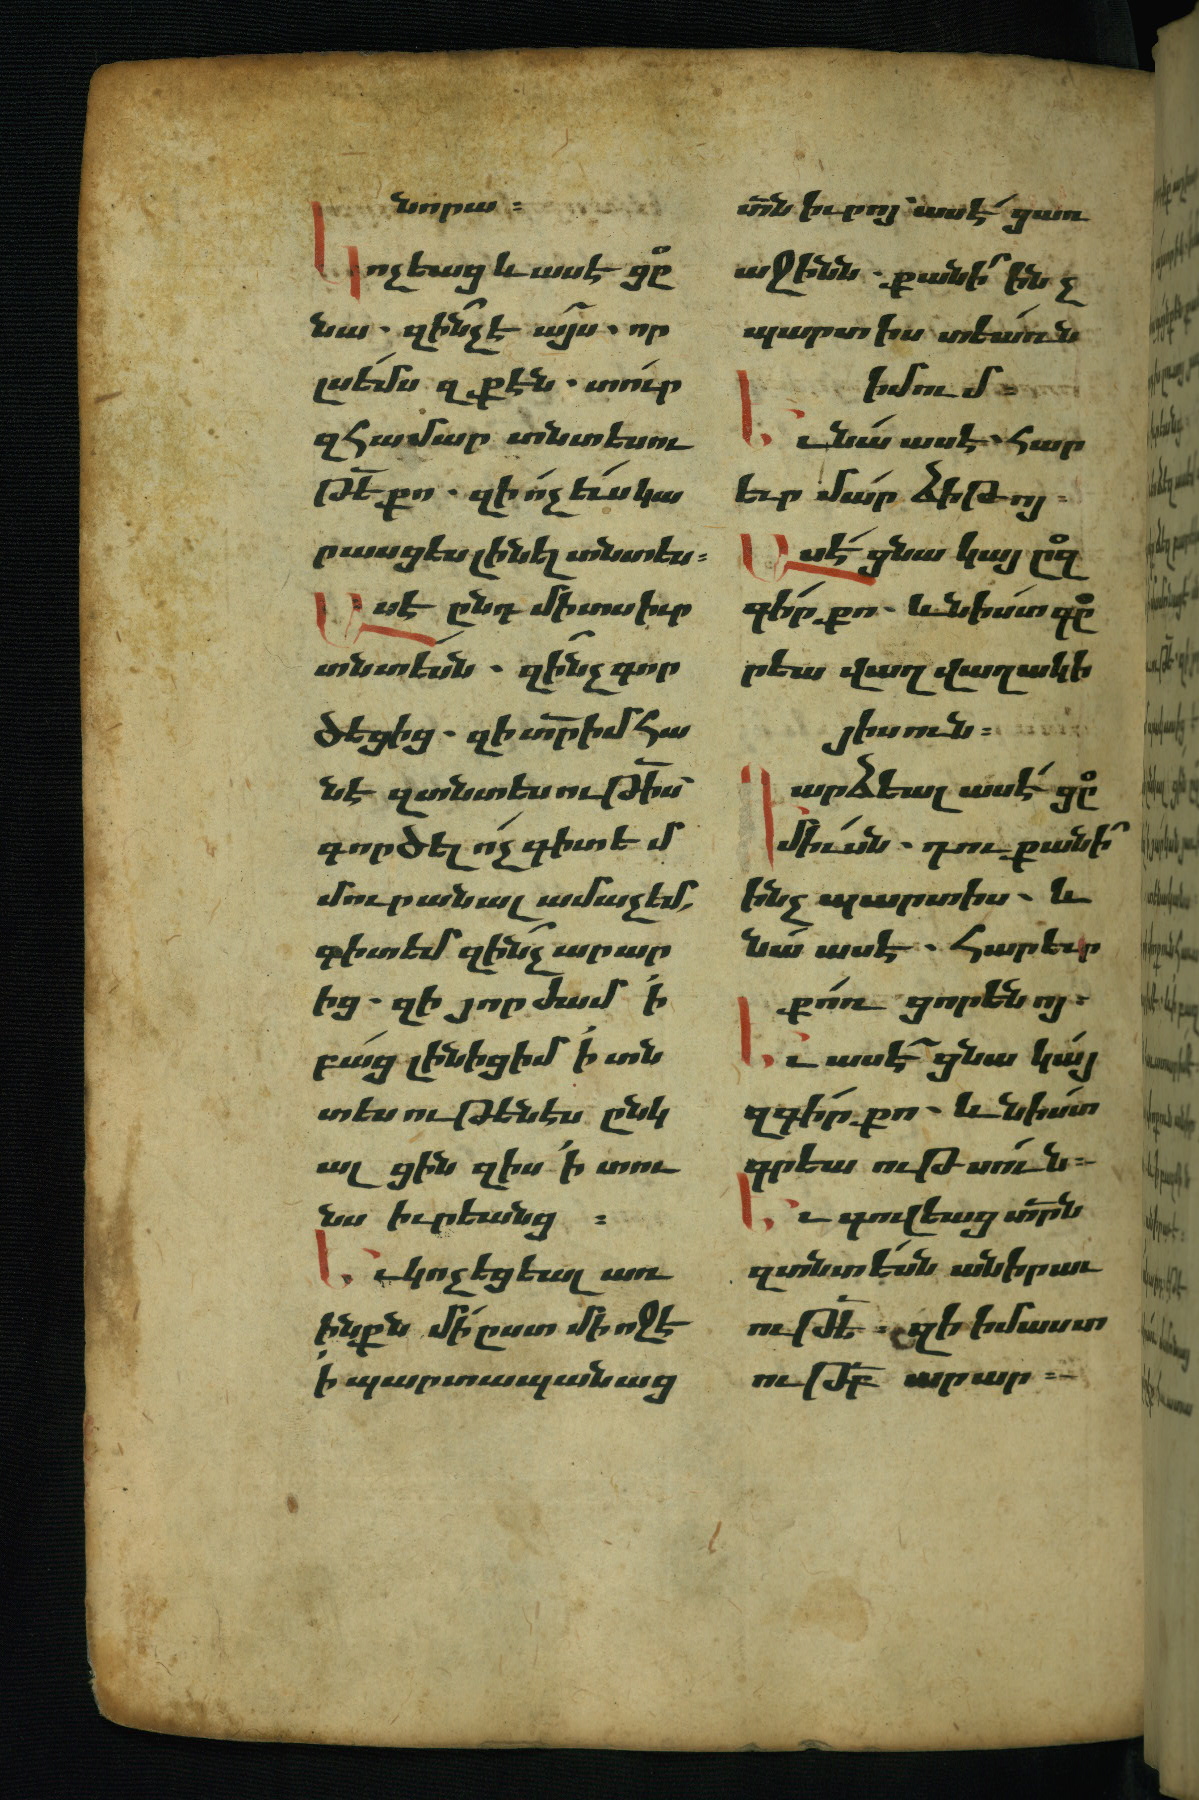 նորա։
Կոչեաց և ասէ ցը
նա. զի՞նչ է այս. որ
լսեմս զքէն. տուր
զհամար տնտեսու
թէ քո. զի ոչ ևս կա
րասցես լինել տնտես։
Ասէ ընդ միտս իւր
տնտեսն. զի՞նչ գոր
ծեցից. զի տր իմ հա
նէ զտնտեսութիս
գործել ոչ գիտեմ
մուրանալ ամաչեմ,
գիտեմ զինչ արար
ից. զի յորժամ ի
բաց լինիցիմ ի տն
տեսութենէս ընկ
ալ ցին զիս ի տու
նս իւրեանց ։
Եւ կոչեցեալ առ
ինքն մի ըստ միոջէ
ի պարտապանաց
տն իւրոյ՝ ասէ ցառ
աջինն. քանի՞ ինչ
պարտիս տեառն
իմում։
Եւ նա ասէ. հար
եւր մար ձիթոյ։
Ասէ ցնա կալ ըզ
գիր քո. և նիստ գը
րեա վաղ վաղակի
յիսուն։
Պարձեալ ասէ ցը
միւսն. դու քանի՞
ինչ պարտիս. և
նա ասէ. հարեւր
քոռ ցորենոյ։
Եւ ասէ ցնա կալ
զգիր քո. և նիստ
գրեա ութսուն։
Եւ գովեաց տրն
զտնտեսն անիրաւ
ութէ. զի իմաստ
ութբ արար։